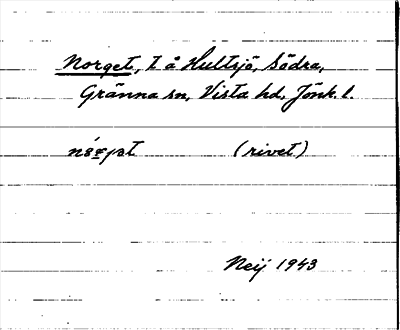 Norget, t å Hultsjö, Södra,
Gränna sn, Vista hd, Jönk. l.
(rivet)
Neij 1943